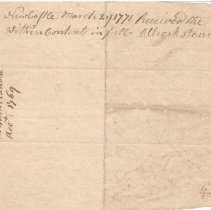 New Castle March 29 1771 Received the
within Contents in full
Acct 1769